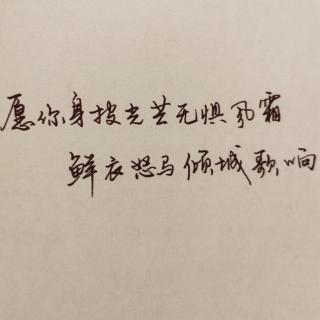 愿你身披光芒无惧风霜
鲜衣怒马倾城歌响